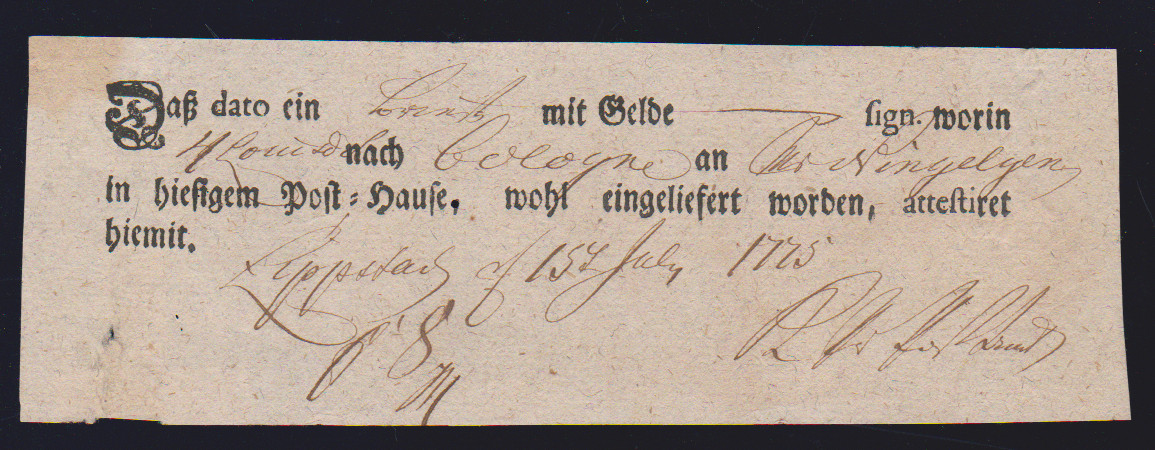 Daß dato ein Brieff mit Gelde sign. worin
4 Louisd nach Cologne an
in hiesigem Post-Hause, wohl eingeliefert worden, attestiret
hiemit.
Lippstadt d 15t July 1775